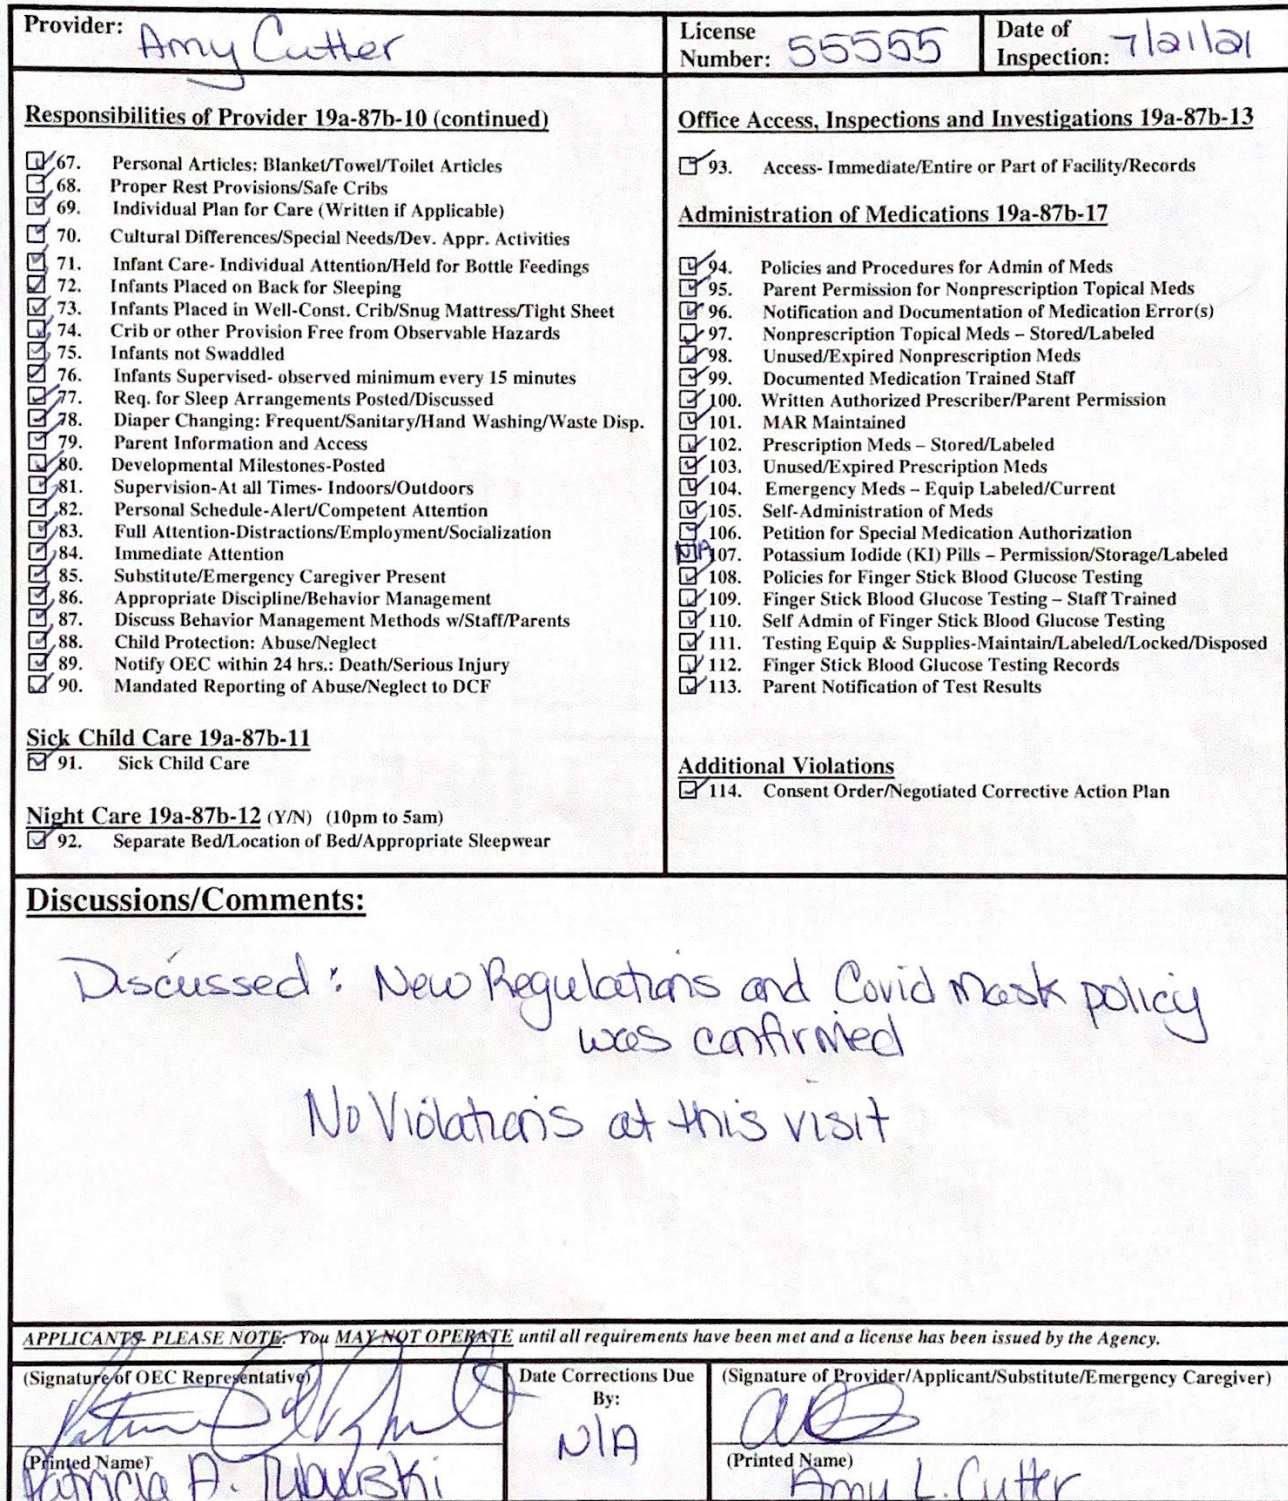 Provider: Amy Cutter
License Number: 55555
Date of Inspection: 7/21/21
Responsibilities of Provider 19a-87b-10 (continued)
67. Personal Articles: Blanket/Towel/Toilet Articles
68. Proper Rest Provisions/Safe Cribs
69. Individual Plan for Care (Written if Applicable)
70. Cultural Differences/Special Needs/Dev. Appr. Activities
71. Infant Care- Individual Attention/Held for Bottle Feedings
72. Infants Placed on Back for Sleeping
73. Infants Placed in Well-Const. Crib/Snug Mattress/Tight Sheet
74. Crib or other Provision Free from Observable Hazards
75. Infants not Swaddled
76. Infants Supervised- observed minimum every 15 minutes
77. Req. for Sleep Arrangements Posted/Discussed
78. Diaper Changing: Frequent/Sanitary/Hand Washing/Waste Disp.
79. Parent Information and Access
80. Developmental Milestones-Posted
81. Supervision-At all Times- Indoors/Outdoors
82. Personal Schedule-Alert/Competent Attention
83. Full Attention-Distractions/Employment/Socialization
84. Immediate Attention
85. Substitute/Emergency Caregiver Present
86. Appropriate Discipline/Behavior Management
87. Discuss Behavior Management Methods w/Staff/Parents
88. Child Protection: Abuse/Neglect
89. Notify OEC within 24 hrs.: Death/Serious Injury
90. Mandated Reporting of Abuse/Neglect to DCF
Sick Child Care 19a-87b-11
91. Sick Child Care
Night Care 19a-87b-12 (Y/N) (10pm to 5am)
92. Separate Bed/Location of Bed/Appropriate Sleepwear
Office Access, Inspections and Investigations 19a-87b-13
93. Access- Immediate/Entire or Part of Facility/Records
Administration of Medications 19a-87b-17
94. Policies and Procedures for Admin of Meds
95. Parent Permission for Nonprescription Topical Meds
96. Notification and Documentation of Medication Error(s)
97. Nonprescription Topical Meds – Stored/Labeled
98. Unused/Expired Nonprescription Meds
99. Documented Medication Trained Staff
100. Written Authorized Prescriber/Parent Permission
101. MAR Maintained
102. Prescription Meds – Stored/Labeled
103. Unused/Expired Prescription Meds
104. Emergency Meds – Equip Labeled/Current
105. Self-Administration of Meds
106. Petition for Special Medication Authorization
N/A 107. Potassium Iodide (KI) Pills – Permission/Storage/Labeled
108. Policies for Finger Stick Blood Glucose Testing
109. Finger Stick Blood Glucose Testing – Staff Trained
110. Self Admin of Finger Stick Blood Glucose Testing
111. Testing Equip & Supplies-Maintain/Labeled/Locked/Disposed
112. Finger Stick Blood Glucose Testing Records
113. Parent Notification of Test Results
Additional Violations
114. Consent Order/Negotiated Corrective Action Plan
Discussions/Comments:
Discussed: New Regulations and Covid Mask policy
was confirmed
No Violations at this visit
APPLICANTS- PLEASE NOTE: You MAY NOT OPERATE until all requirements have been met and a license has been issued by the Agency.
(Signature of OEC Representative)
(Printed Name)
Patricia A.
Date Corrections Due
By:
N/A
(Signature of Provider/Applicant/Substitute/Emergency Caregiver)
(Printed Name)
Amy L. Cutter